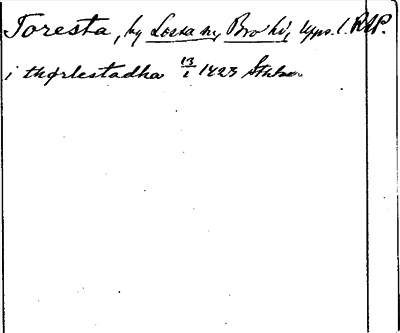 Toresta, by Lossa sn, Bro hd, Upps. l. RAP.
i thørlestadha 13/1 1423 Sthlm